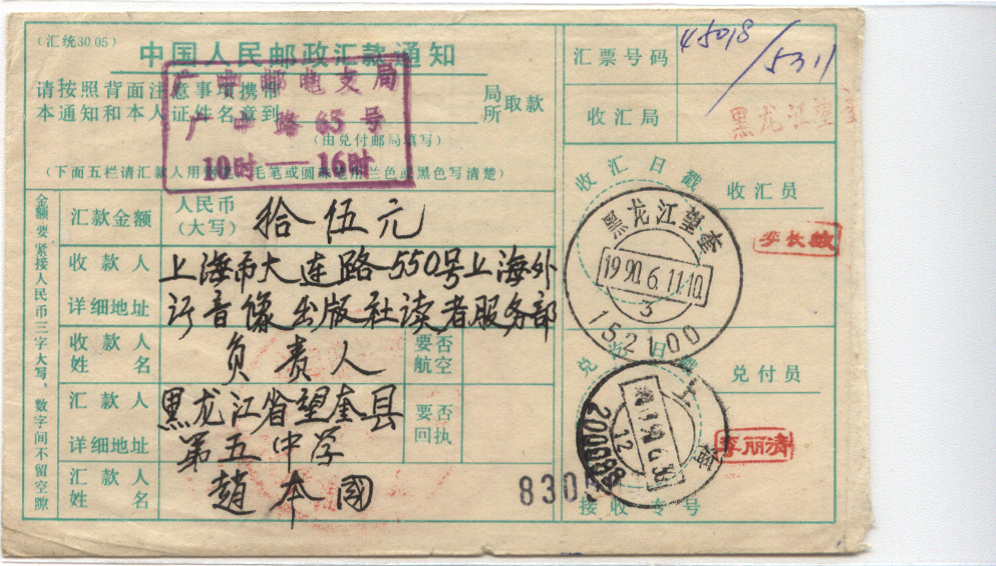 (汇统3005)
中国人民邮政汇款通知
请按照背面注意事项携带
本通知和本人证件名章到
局
所
取款
(由兑付邮局填写)
广中邮电支局
广中路65号
10时—16时
(下面五栏请汇款人用
毛笔或圆珠笔用兰色或黑色写清楚)
汇票号码
45018/5311
收汇局
黑龙江望奎
金额要紧接人民币三字大写,数字间不留空隙
汇款金额
人民币
(大写)
拾伍元
收款人
详细地址
上海市大连路550号上海外
订音像出版社读者服务部
收款人
姓名
负责人
要否
航空
汇款人
详细地址
黑龙江省望奎县
第五中学
要否
回执
汇款人
姓名
趙本國
830
收汇日戳
黑龙江望奎
1990.6.11.10
3
152100
收汇员
李长敏
兑汇日戳
上
200083
12
兑付员
李丽清
接收专号